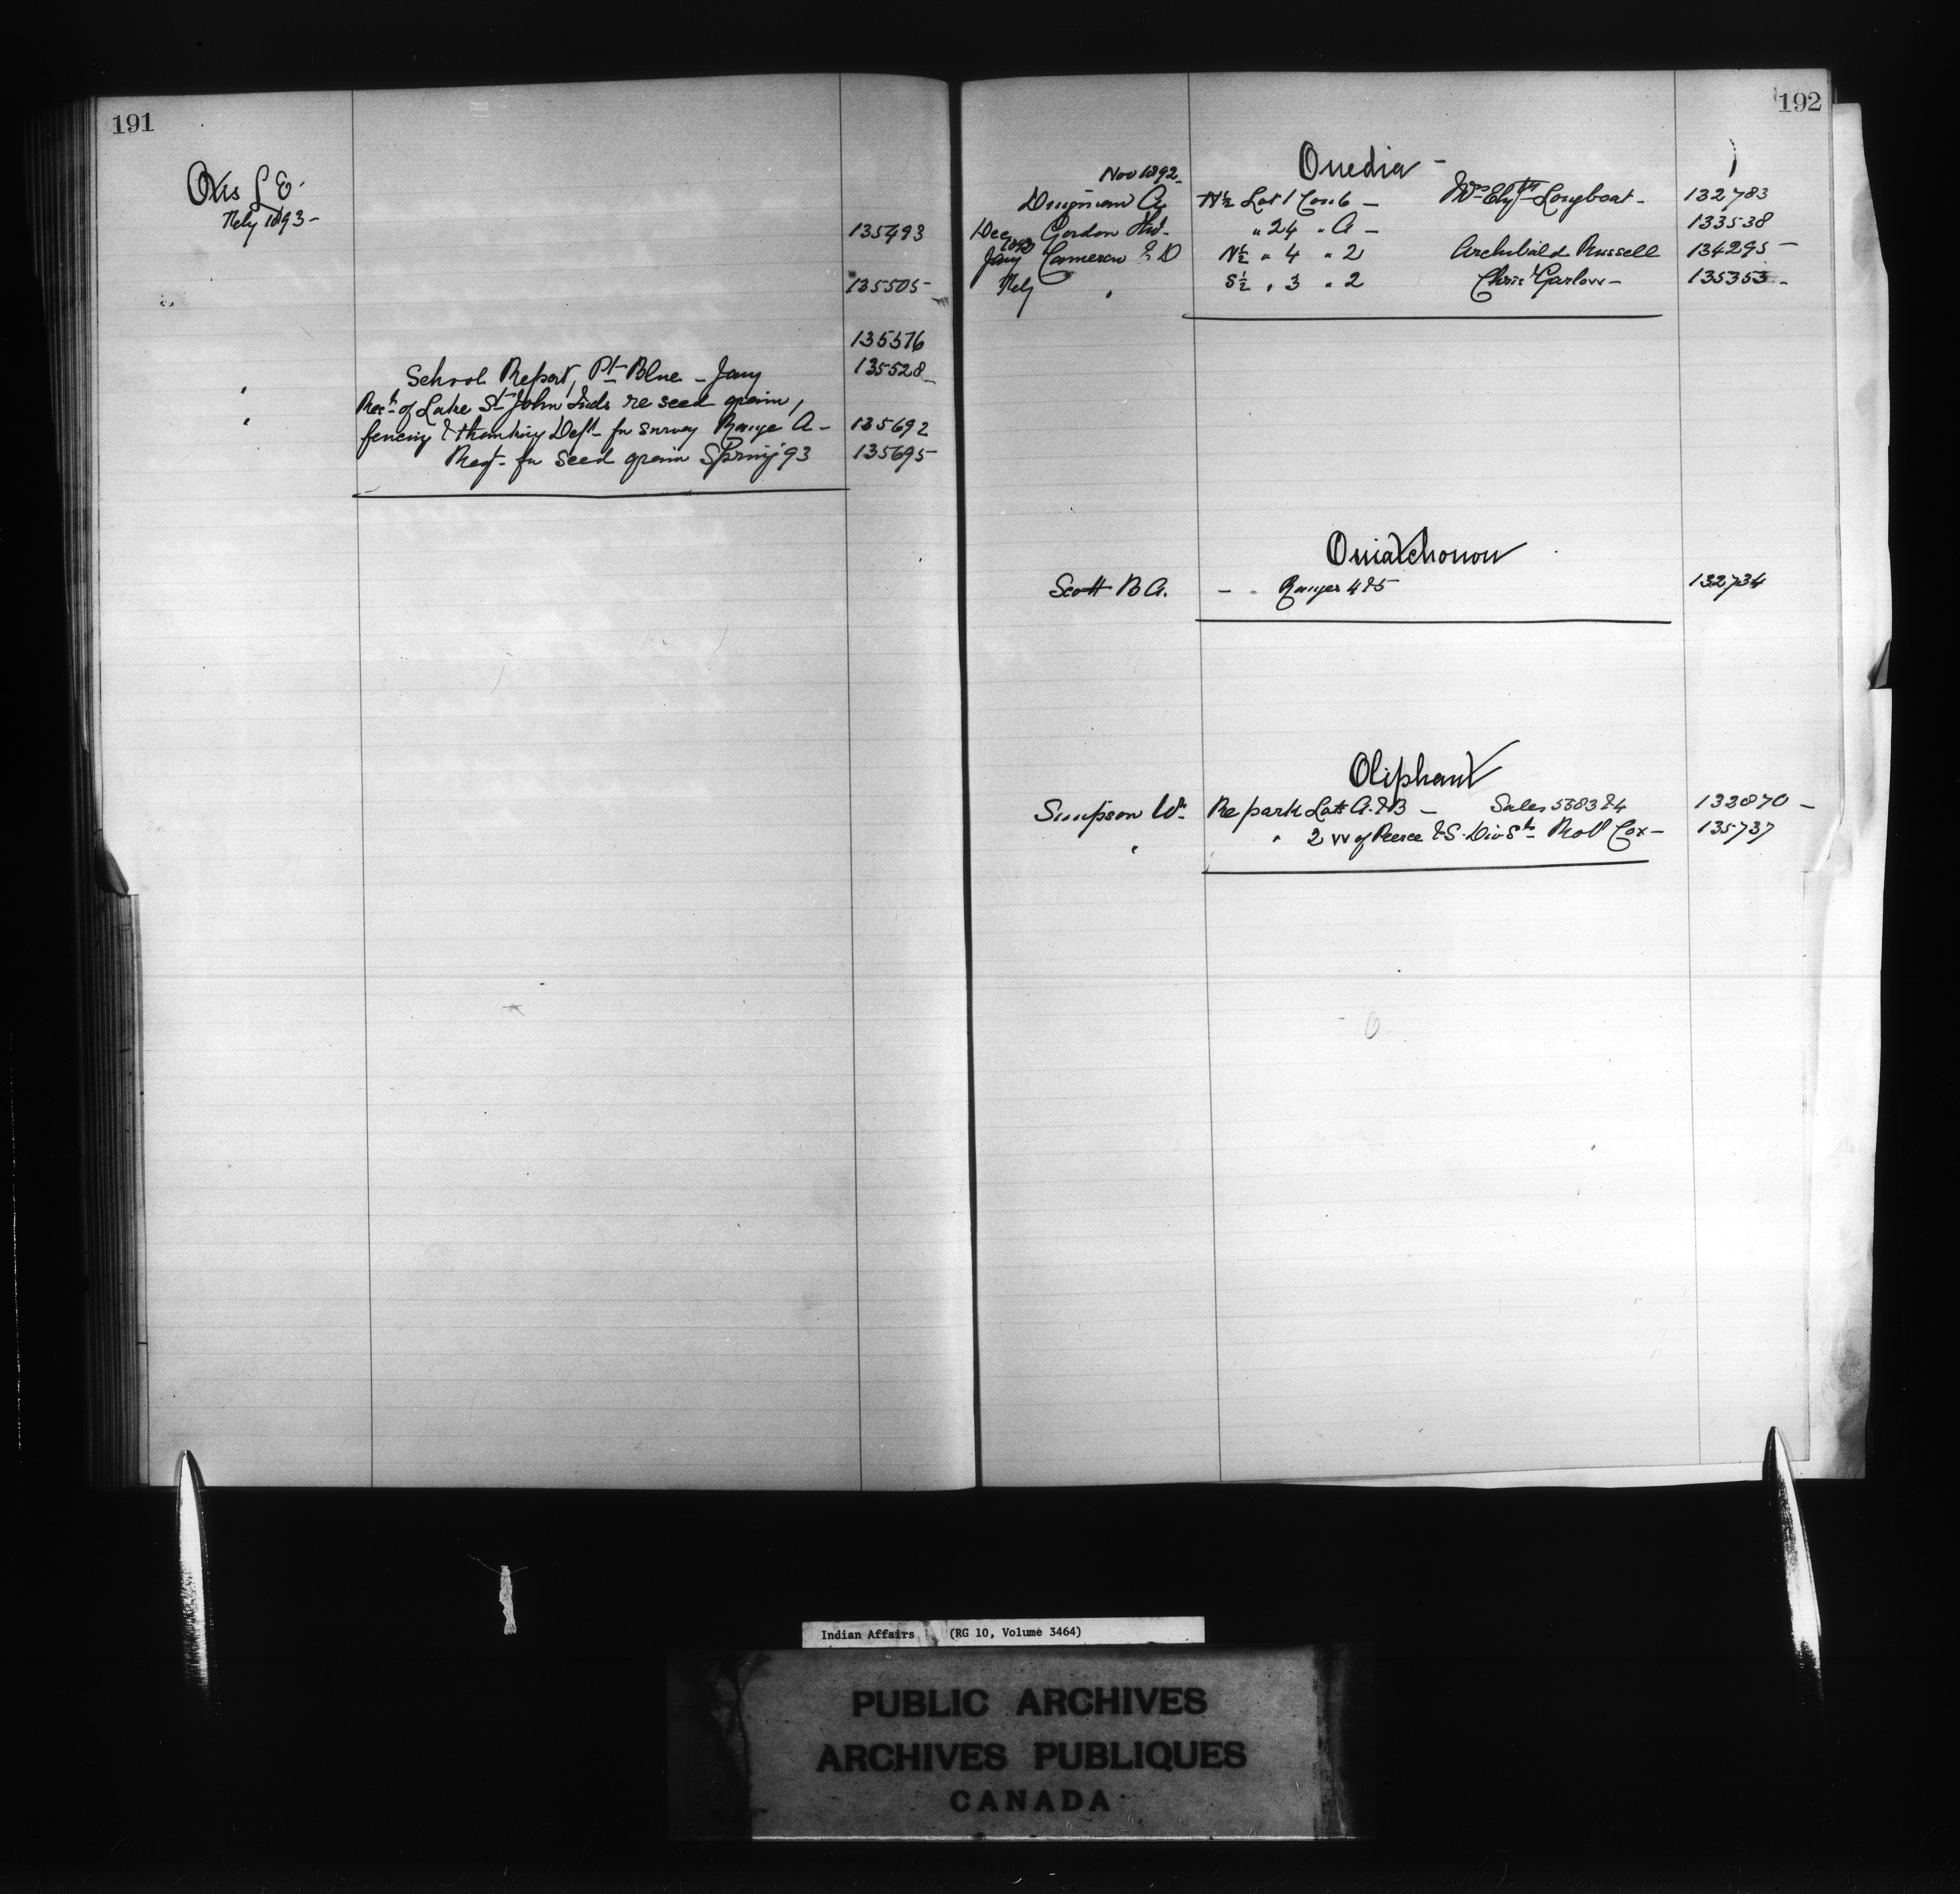 191
Otis L E.
Feby 1893-
135493
135505-
135576
" School Report, Pt Blue - Jany 135528-
" Rect of Lake St John Inds re seed grain,
fencing & thanking Dept for survey Range A- 135692
Reqt for seed grain Spring '93 135695-
192
Onedia -
Nov 1892-
A N½ Lot 1 Con 6 - Mrs Elyth Longboat- 132783
Dec Gordon " 24 " A - 133538
1893
Jany Cameron E D N½ " 4 " 2 Archibald Russell 134295-
Feby " S½ " 3 " 2 Chris Garlow- 135353-
Ouiatchouou
Scott B A. - " Ranges 4 & 5 132734
Oliphant
Simpson Wm Re park Lots A. & B - Sales 5383 & 4 132870-
" " 2 W of Peerce & S. Div St- Robt Cox- 135737
Indian Affairs (RG 10, Volume 3464)
PUBLIC ARCHIVES
ARCHIVES PUBLIQUES
CANADA